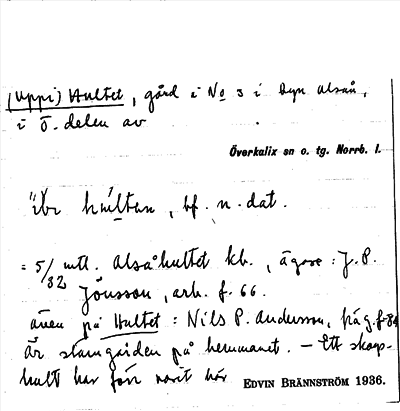 (Uppi) Hultet, gård i No 3 i byn Alsån,
i ö. delen av
Överkalix sn o. tg. Norrb. l.
bf. n. dat.
= 5/32 mtl. Alsåhultet kb., ägare: J. P.
Jönsson, arb. f. 66.
även på Hultet: Nils P. Andersson,
Är stamgården på hemmanet. – Ett skogs-
hult har förr varit här
EDVIN BRÄNNSTRÖM 1936.